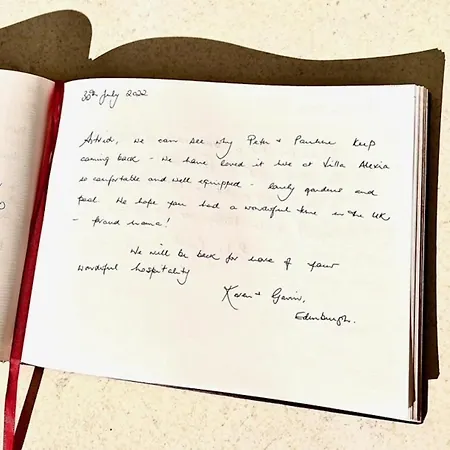 30th July 2022
Astrid, we can see why Peter + Pauline keep
coming back - we have loved it here at Villa Alexia
so comfortable and well equipped - lovely gardens and
pool. We hope you had a wonderful time in the UK
- proud mama!
We will be back for more of your
wonderful hospitality
Karen + Gavin,
Edinburgh.